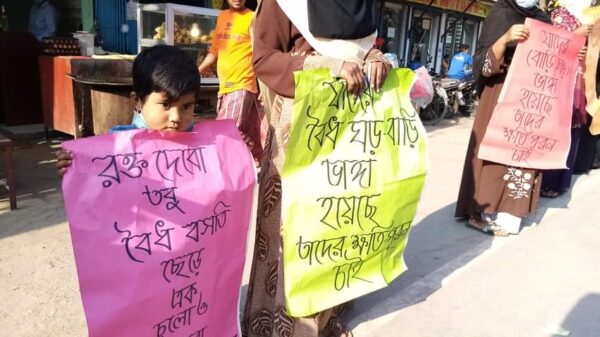 রক্ত দেবো
তবু
বৈধ বসতি
ছেড়ে
এক
চলো ও
যাদের
বৈধ ঘড়-বাড়ি
ভাঙ্গা
হয়েছে
তাদের ক্ষতি পুরন
চাই
যাদের
বাড়ি
ভাঙ্গা
হয়েছে
তাদের
ক্ষতি পুরন
চাই